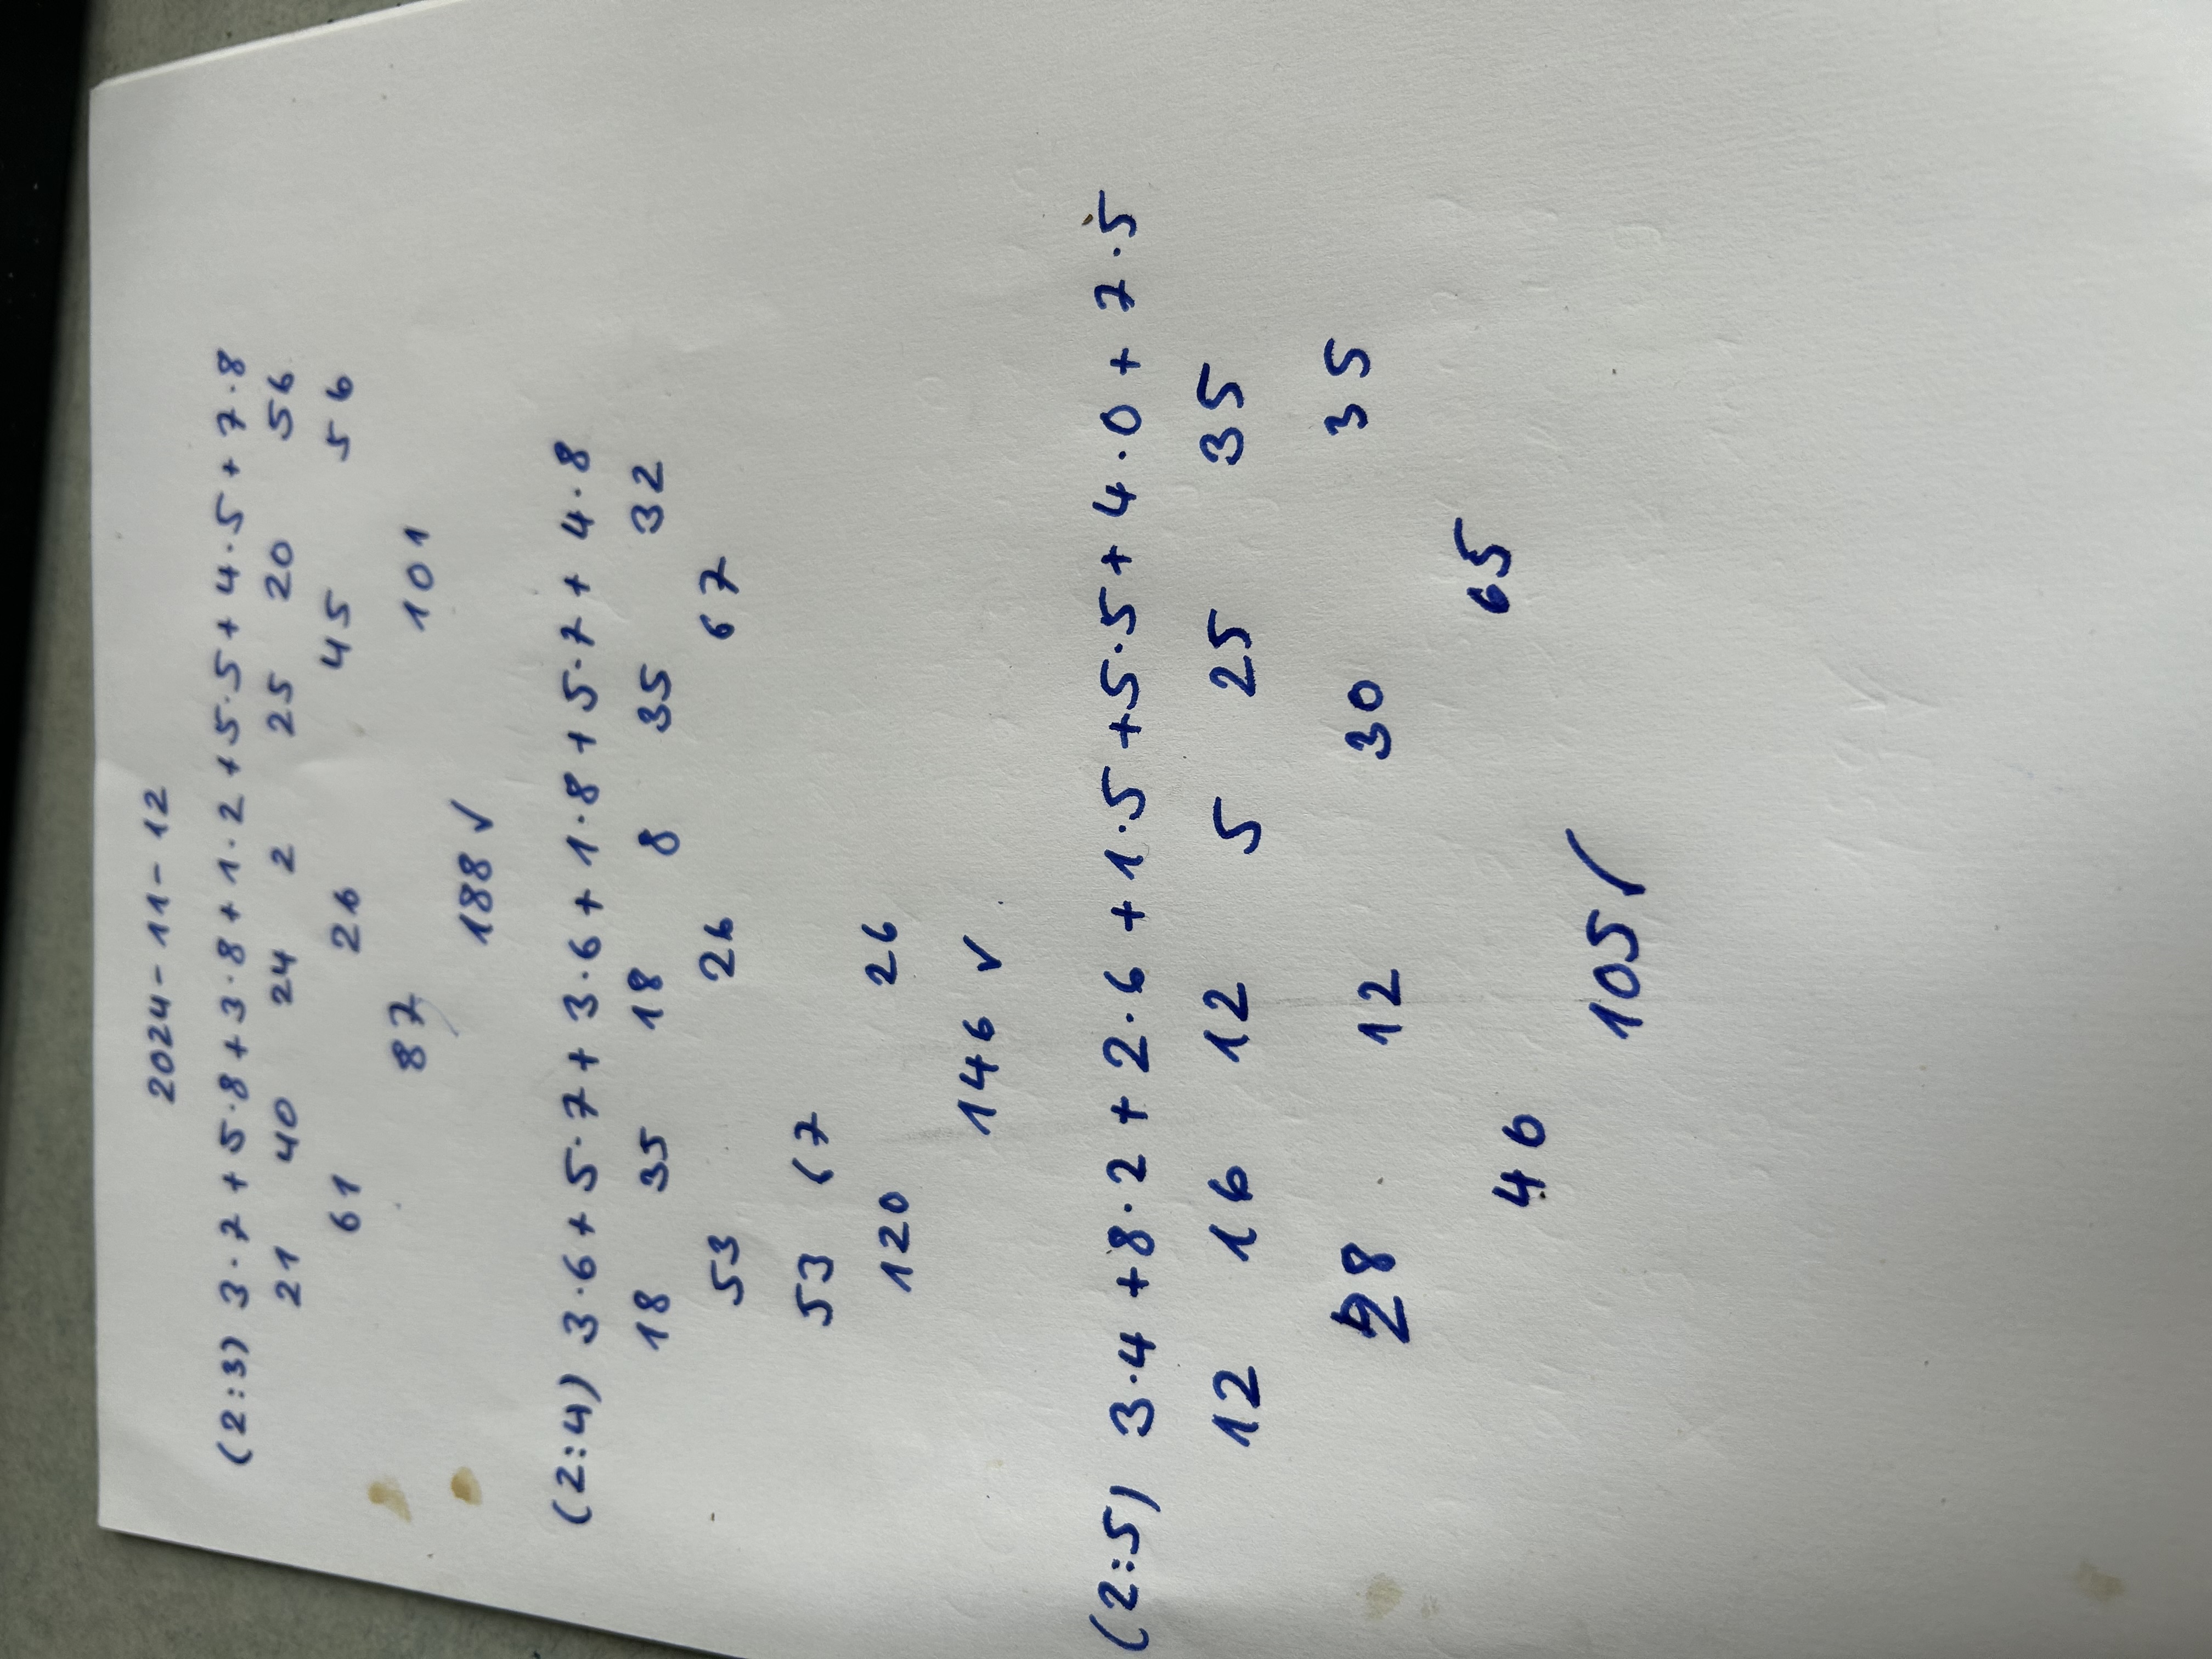 2024-11-12
(2:3) 3·7 + 5·8 + 3·8 + 1·2 + 5·5 + 4·5 + 7·8
21 40 24 2 25 20 56
61 26 45 56
87 101
188 ✓
(2:4) 3·6 + 5·7 + 3·6 + 1·8 + 5·7 + 4·8
18 35 18 8 35 32
53 26 67
53 67
120 26
146 ✓
(2:5) 3·4 + 8·2 + 2·6 + 1·5 + 5·5 + 4·0 + 7·5
12 16 12 5 25 35
28 12 30 35
40 65
105 ✓